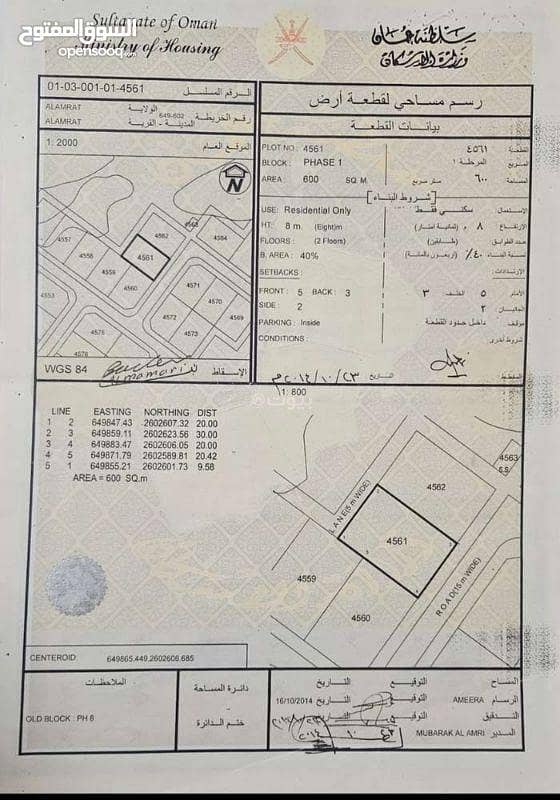 السوق المفتوح
opensooq.com
Sultanate of Oman
Ministry of Housing
سلطنة عمان
وزارة الإسكان
01-03-001-01-4561 الرقم المسلسل
ALAMRAT الولاية
ALAMRAT المدينة - القرية
649-602 رقم الخريطة
1: 2000 الموقع العام
N
4557
4558
4559
4560
4561
4562
4563
4564
4571
4570
4569
4572
4573
4574
4575
4576
WGS 84 الاسقاط
رسم مساحي لقطعة أرض
بيانات القطعة
PLOT NO.: 4561 ٤٥٦١ القطعة
BLOCK : PHASE 1 المرحلة ١ المربع
AREA : 600 SQ. M ٦٠٠ متر مربع مساحة
[شروط البناء]
USE: Residential Only سكني فقط الاستعمال
HT: 8 m (Eight)m ٨ م (ثمانية امتار) الارتفاع
FLOORS : (2 Floors) (طابقين) عدد الطوابق
B. AREA : 40% ٤٠٪ (اربعون بالمائة) نسبة البناء
SETBACKS : الارتدادات
FRONT : 5 BACK : 3 ٣ الخلف ٥ الأمام
SIDE : 2 ٢ الجانبان
PARKING : Inside داخل حدود القطعة موقف
CONDITIONS : شروط أخرى
المخطط التاريخ ٢٠١٤/١٠/٢٣م
1: 600
بيوت
LINE EASTING NORTHING DIST
1 2 649847.43 2602607.32 20.00
2 3 649859.11 2602623.56 30.00
3 4 649883.47 2602606.05 20.00
4 5 649871.79 2602589.81 20.42
5 1 649855.21 2602601.73 9.58
AREA = 600 SQ.m
LANE(5 m WIDE)
4563
S.S
4562
4561
4559
4560
ROAD(15 m WIDE)
CENTEROID: 649865.449,2602606.685
الملاحظات
OLD BLOCK : PH 6
دائرة المساحة
ختم الدائرة
المساح التوقيع التاريخ
الرسام AMEERA التوقيع التاريخ 16/10/2014
التدقيق التوقيع التاريخ
المدير MUBARAK AL AMRI